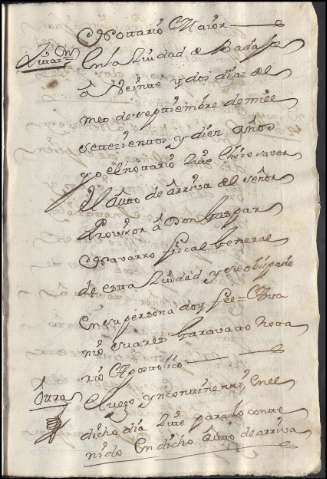 Notario Maior
En la Ciudad de Badajoz
a Veinte y dos dias del
mes de septiembre de mill
setezientos y diez años
yo el notario hize saver
el auto de arriva del señor
Provisor a Don Gaspar
Navarro fiscal general
de esta Ciudad y su obispado
en su persona doy fee=
nio suarez notta
rio Appostolico
Otra
Luego yncontinenti en el
dicho dia para lo conte
nido en dicho auto de arriva